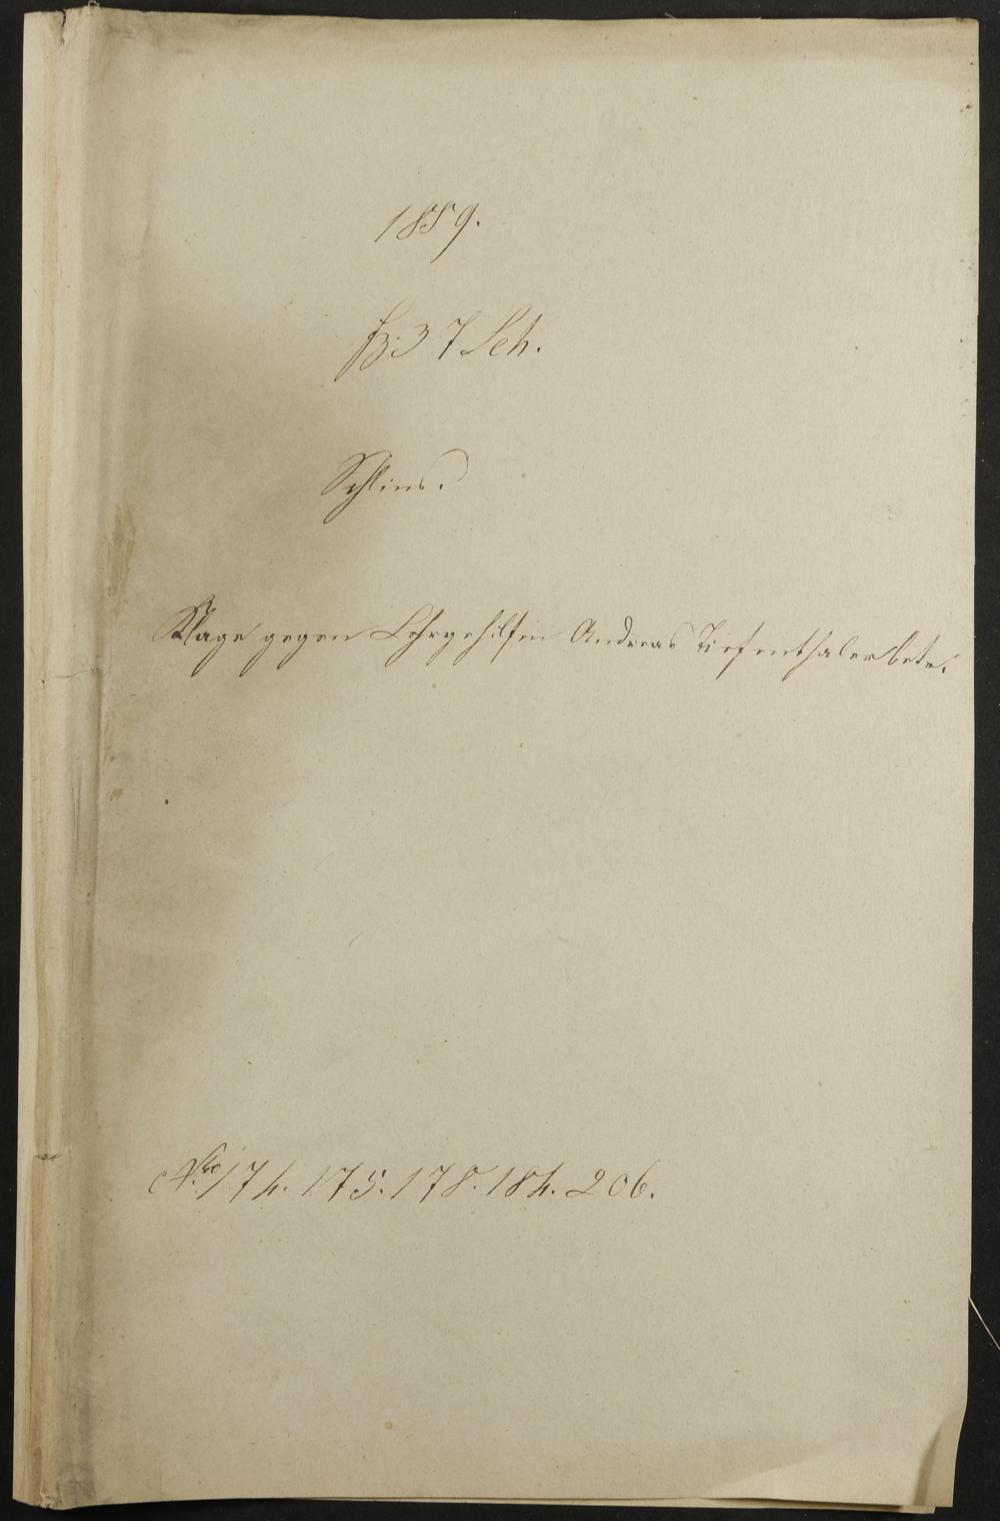 1859.
fz: 37 Sch.
Schlins.
Klage gegen Lehrgehilfen Andreas Tiefenthaler betr.
No 174. 175. 178. 184. 206.